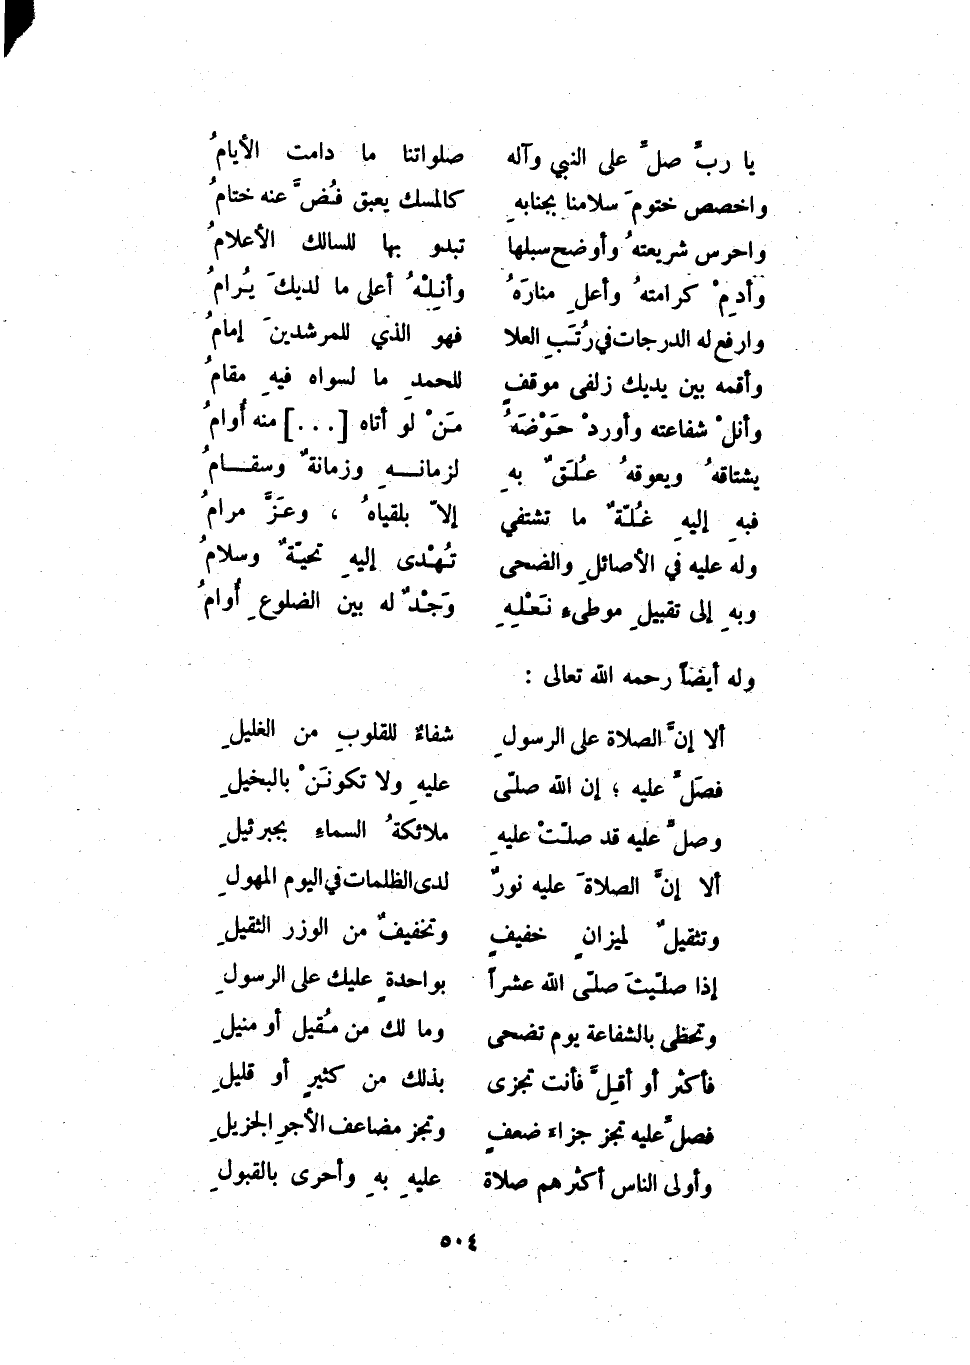 يا ربَّ صلَّ على النبي وآله صلواتنا ما دامت الأيامُ
واخصص ختومَ سلامنا بجنابهِ كالمسك يعبق فُضَّ عنه ختامُ
واحرس شريعتهُ وأوضح سبلها تبدو بها للسالك الأعلامُ
وأدمِْ كرامتهُ وأعلِ منارَهُ وأنِلْهُ أعلى ما لديكَ يُرامُ
وارفع له الدرجات في رُتَبِ العلا فهو الذي للمرشدينَ إمامُ
وأقمه بين يديك زلفى موقفٍ للحمدِ ما لسواه فيهِ مقامُ
وأنلْ شفاعته وأوردْ حَوْضَهُ مَنْ لو أتاه [...] منه أُوامُ
يشتاقهُ ويعوقهُ عُلَقٌ بهِ لزمانـــهِ وزمانةٌ وسقـــامُ
فبهِ إليهِ غُلّةٌ ما تشتفي إلاّ بلقياهُ ، وعَزَّ مرامُ
وله عليه في الأصائلِ والضحى تُهْدى إليهِ تحيّةٌ وسلامُ
وبهِ إلى تقبيلِ موطىء نَعْلِهِ وَجْدٌ له بين الضلوعِ أُوامُ
وله أيضاً رحمه الله تعالى :
ألا إنَّ الصلاة على الرسولِ شفاءٌ للقلوبِ من الغليلِ
فصَلَّ عليه ؛ إن الله صلّى عليهِ ولا تكونَنْ بالبخيلِ
وصلَّ عليه قد صلّتْ عليهِ ملائكةُ السماءِ بجبرئيلِ
ألا إنَّ الصلاةَ عليه نورٌ لدى الظلمات في اليوم المهولِ
وتثقيلٌ لميزانٍ خفيفٍ وتخفيفٌ من الوزر الثقيلِ
إذا صلّيتَ صلّى الله عشراً بواحدةٍ عليك على الرسولِ
وتحظى بالشفاعة يوم تضحى وما لك من مُقيل أو منيلِ
فأكثر أو أقِلَّ فأنت تجزى بذلك من كثيرٍ أو قليلِ
فصلَّ عليه تجز جزاء ضعفٍ وتجز مضاعف الأجرِ الجزيلِ
وأولى الناس أكثرهم صلاة عليهِ بهِ وأحرى بالقبولِ
٥٠٤